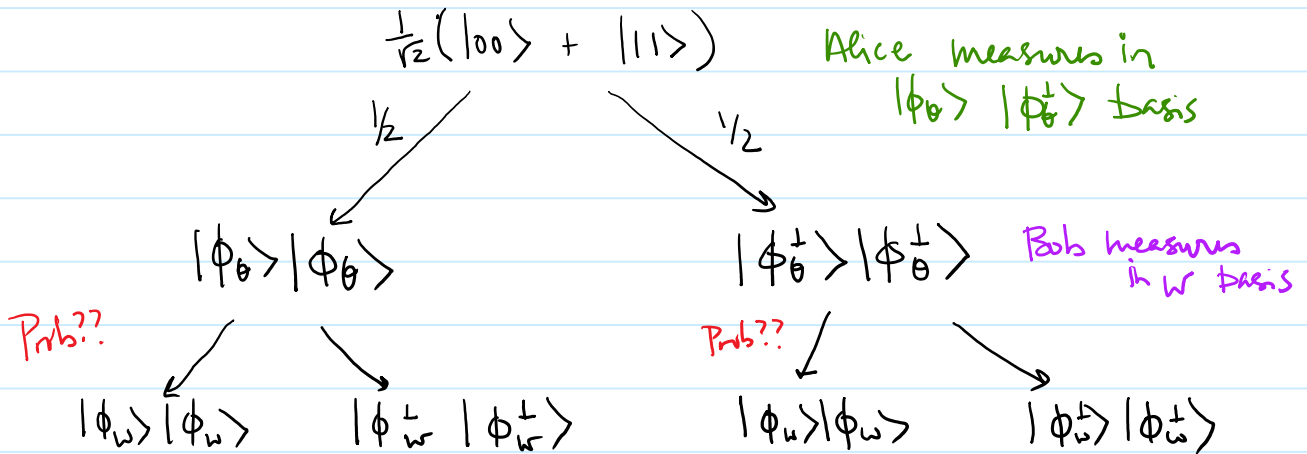 1/√2 (|00⟩ + |11⟩)
Alice measures in
|ϕ_θ⟩ |ϕ_θ^⊥⟩ basis
1/2
1/2
|ϕ_θ⟩|ϕ_θ⟩
|ϕ_θ^⊥⟩|ϕ_θ^⊥⟩
Bob measures
in w basis
Prob??
Prob??
|ϕ_w⟩|ϕ_w⟩
|ϕ_w^⊥ |ϕ_w^⊥⟩
|ϕ_w⟩|ϕ_w⟩
|ϕ_w^⊥⟩|ϕ_w^⊥⟩